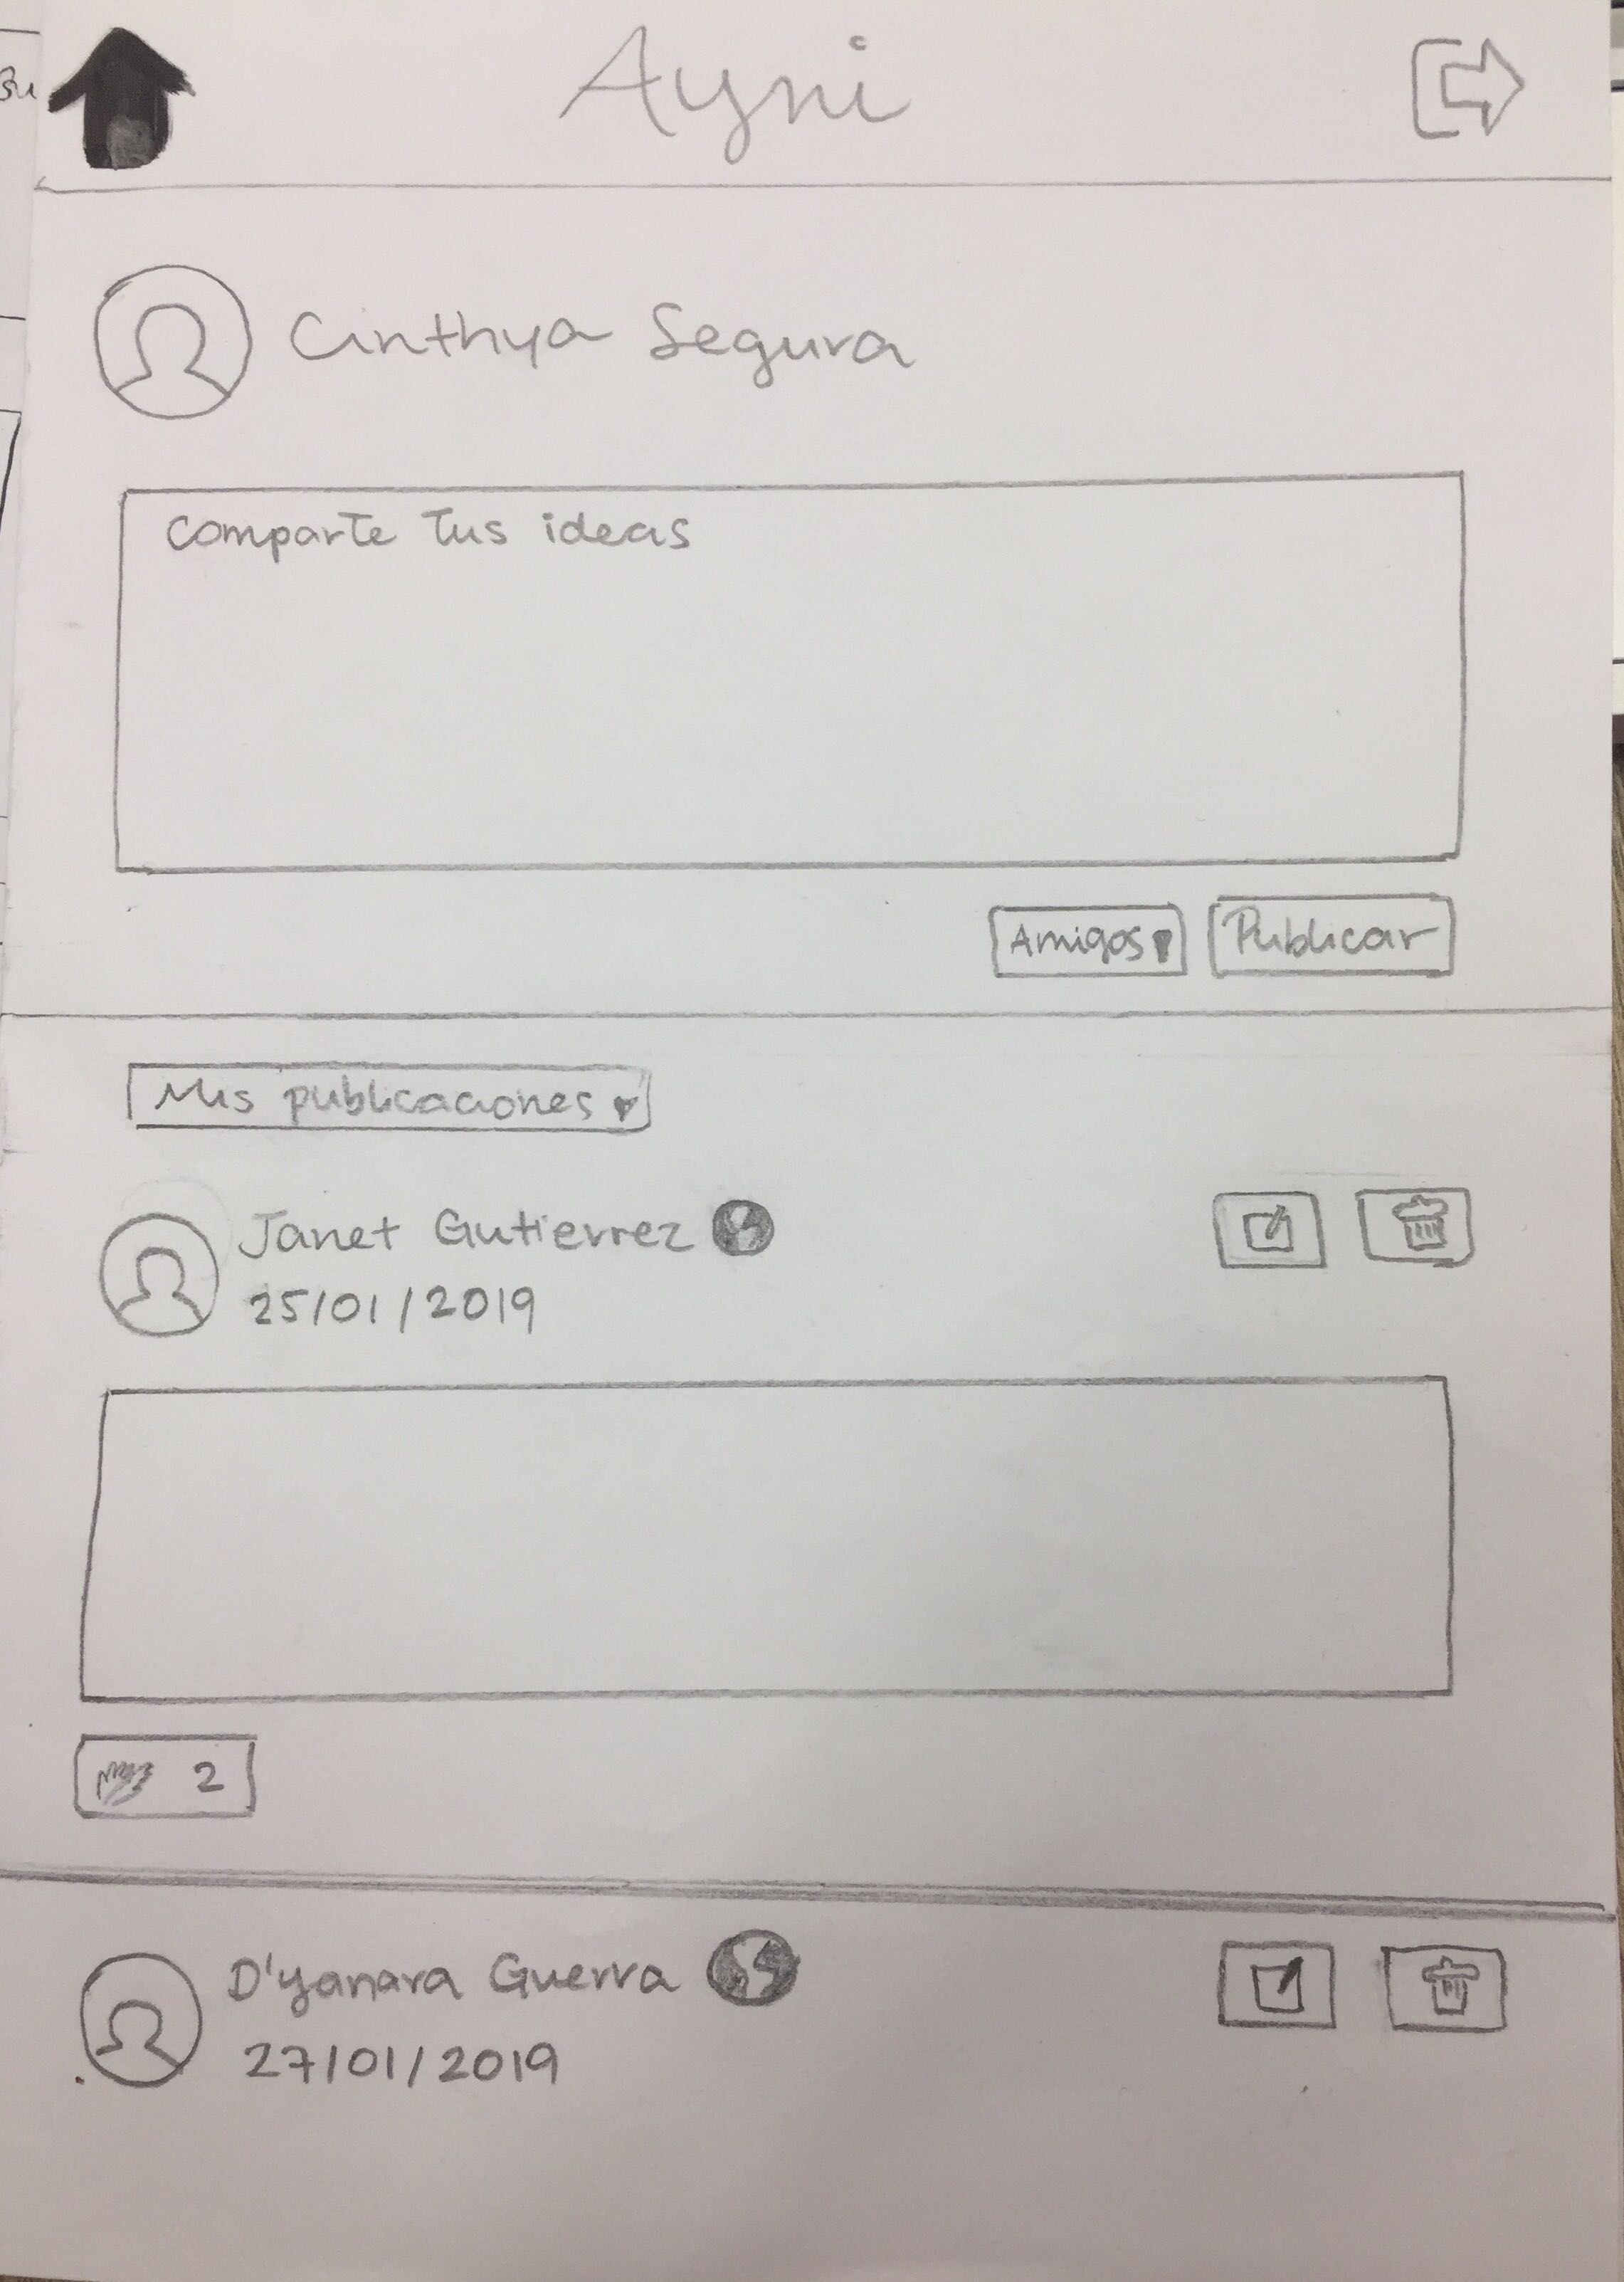 Ayni
Cinthya Segura
Comparte Tus ideas
Amigos Publicar
Mis publicaciones
Janet Gutierrez
25/01/2019
2
D'yanara Guerra
27/01/2019